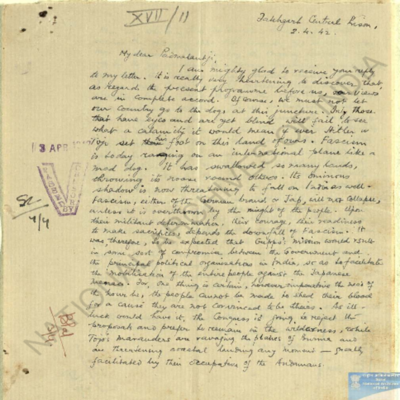 XVII/11
Fatehgarh Central Prison,
2.4.42.
My dear
I am mighty glad to receive your reply
to my letter. It is really very heartening to discover that
as regards the present programme before us, our views
are in complete accord. Of course, we must not let
our country go to the dogs at this juncture. Only those
that have eyes and are yet blind will fail to see
what a calamity it would mean if ever Hitler or
Tojo set their foot on this land of ours. Fascism
is today roaming on an international plane like a
mad dog. It has swallowed so many lands,
throwing its noose round others. Its ominous
shadow is now threatening to fall on India as well.
Fascism, either of the German brand or Jap, will not collapse,
unless it is overthrown by the might of the people. Upon
their militant determination, their courage, their readiness
to make sacrifices, depends the downfall of Fascism. It
was, therefore, to be expected that Cripps's mission would result
in some sort of compromise between the Government and
the principal political organisations in India, so as to facilitate
the mobilisation of the entire people against the Japanese
menace. For, one thing is certain, however imperative the need of
the hour be, the people cannot be made to shed their blood
for a cause they are not convinced to be theirs. As ill
luck would have it, the Congress is going to reject the
proposals and prefer to remain in the wilderness, while
Tojo's marauders are ravaging the shores of Burma and
are threatening coastal landing any moment — greatly
facilitated by their occupation of the Andamans.
3 APR
4/4